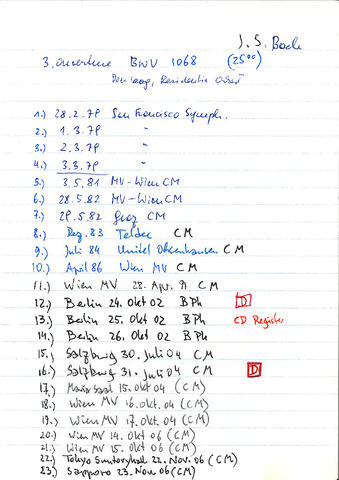 J. S. Bach
3. Ouverture BWV 1068 (25⁰⁰)
Residentie
1.) 28.2.79 San Francisco Symph.
2.) 1.3.79 "
3.) 2.3.79 "
4.) 3.3.79 "
5.) 3.5.81 MV-Wien CM
6.) 28.5.82 MV-Wien CM
7.) 29.5.82 Graz CM
8.) Dez. 83 Teldec CM
9.) Juli 84 Unitel Ottenhausen CM
10.) April 86 Wien MV CM
11.) Wien MV 28. Apr. 91 CM
12.) Berlin 24. Okt 02 BPh D
13.) Berlin 25. Okt 02 BPh CD Register
14.) Berlin 26. Okt 02 BPh
15.) Salzburg 30. Juli 04 CM
16.) Salzburg 31. Juli 04 CM D
17.) 15. Okt. 04 (CM)
18.) Wien MV 16. Okt. 04 (CM)
19.) Wien MV 17. Okt. 04 (CM)
20.) Wien MV 14. Okt 06 (CM)
21.) Wien MV 15. Okt 06 (CM)
22.) Tokyo Suntory Hall 22. Nov. 06 (CM)
23.) Sapporo 23. Nov 06 (CM)